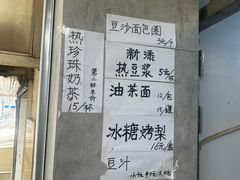 热珍珠奶茶
15/杯
第二杯半价
豆沙面包圈
3元/个
新添
热豆浆
5元/
油茶面
12/
13/
冰糖烤梨
16元/
豆汁